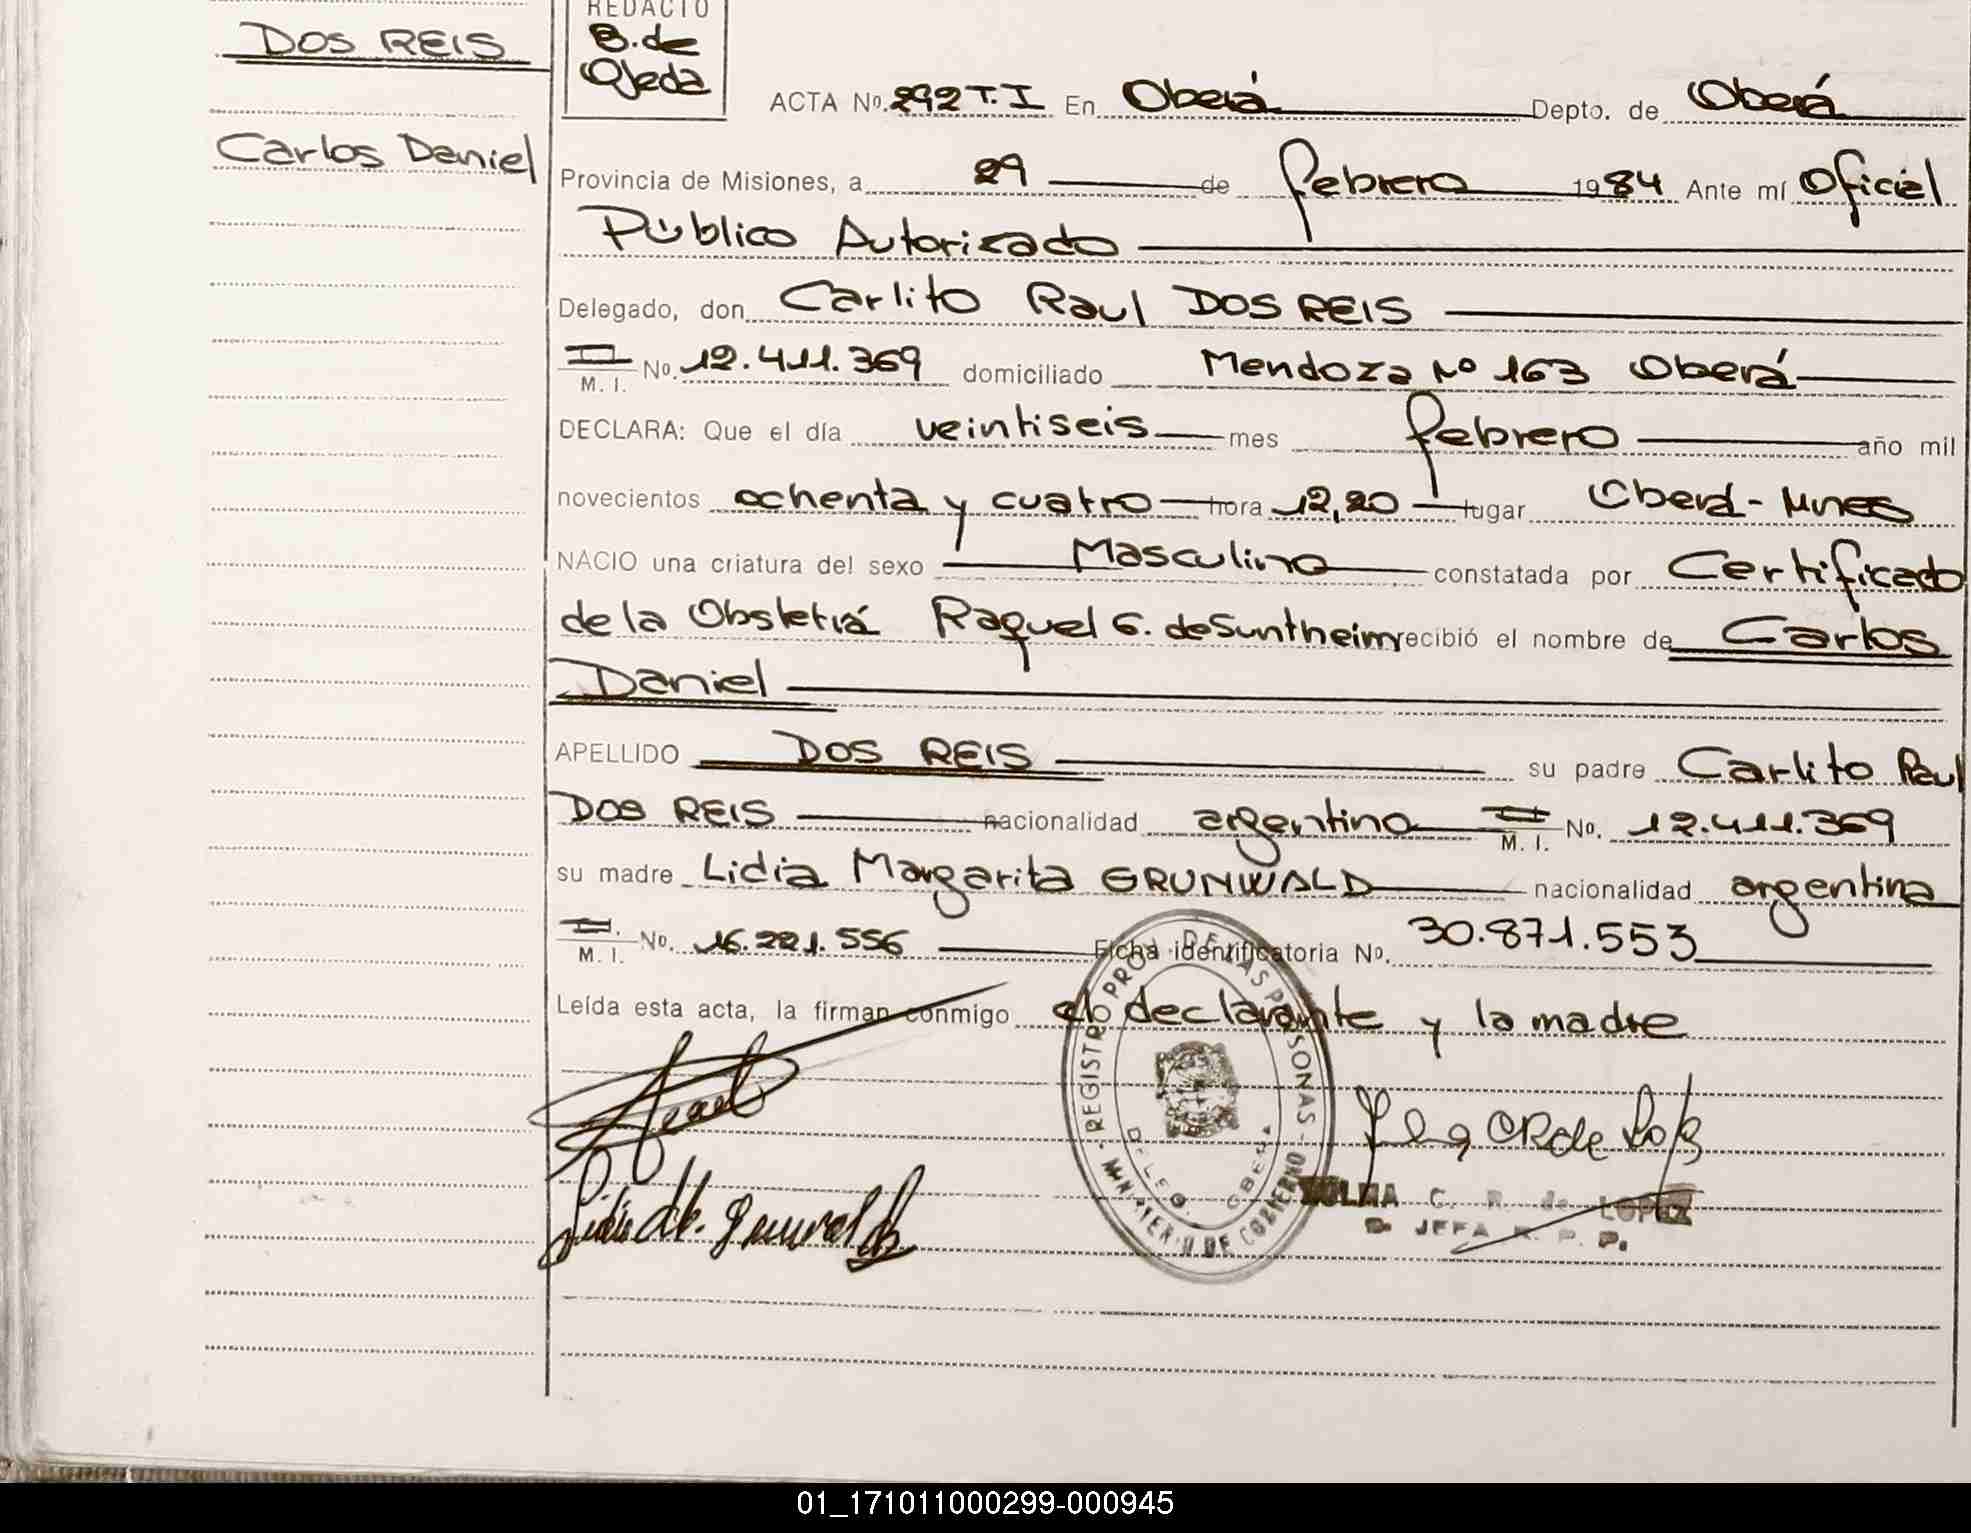 DOS REIS
Carlos Daniel
REDACTO
B. de
Ojeda
ACTA Nº. 292 T. I En Oberá Depto. de Oberá
Provincia de Misiones, a 29 de febrero 1984 Ante mí Oficial
Público Autorizado
Delegado, don Carlito Raul DOS REIS
M. I. No. 12.411.369 domiciliado Mendoza Nº 163 Oberá
DECLARA: Que el día veintiseis mes febrero año mil
novecientos ochenta y cuatro hora 12,20 lugar Oberá - Mnes
NACIO una criatura del sexo Masculino constatada por Certificado
de la Obstetrá Raquel G. de Suntheim recibió el nombre de Carlos
Daniel
APELLIDO DOS REIS su padre Carlito Raul
DOS REIS nacionalidad argentino M. I. No. 12.411.369
su madre Lidia Margarita GRUNWALD nacionalidad argentina
M. I. No. 16.221.556 Ficha identificatoria No. 30.871.553
Leída esta acta, la firman conmigo el declarante y la madre
REGISTRO PROV. DE LAS PERSONAS
DELEG. OBERA
MINISTERIO DE GOBIERNO
Lidia M. Grunwald
ZULMA C. R. de LOPEZ
JEFA R. P. P.
01_171011000299-000945